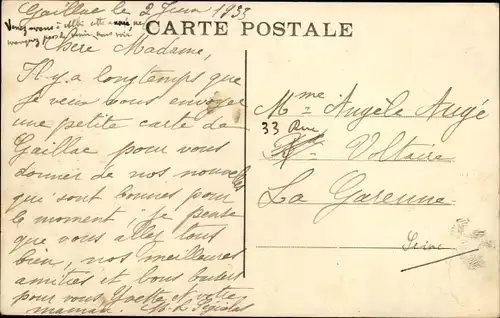 Gaillac le 2 Juin 1933
Venez-vous à Albi cette année, ne
manquez pas de venir nous voir
CARTE POSTALE
Chère Madame,
Il y a longtemps que
je veux vous envoyer
une petite carte de
Gaillac pour vous
donner de nos nouvelles
qui sont bonnes pour
le moment, je pense
que vous allez tous
bien, nos meilleures
amitiés et bons baisers
pour vous, Yvette et votre
maman.
Mme Angèle Augé
33 Rue
Voltaire
La Garenne
Seine